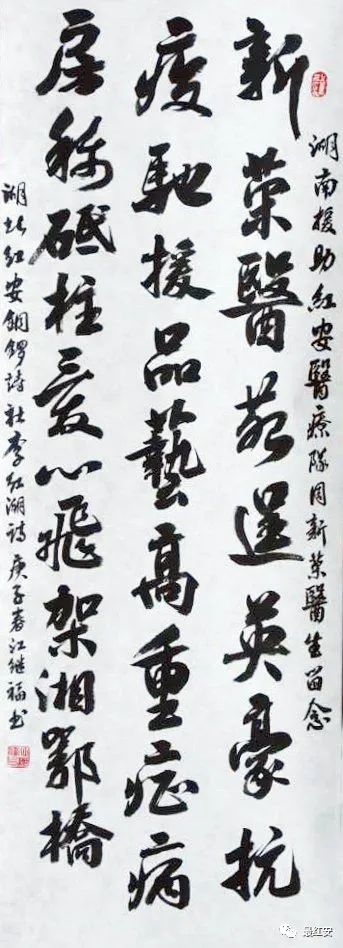 湖南援助紅安醫療隊周新荣醫生留念
新荣醫苑逞英豪抗
疫馳援品藝高重症病
房称砥柱愛心飛架湘鄂橋
湖北紅安銅鑼詩社李紅湖詩 庚子春江继福书
最红安